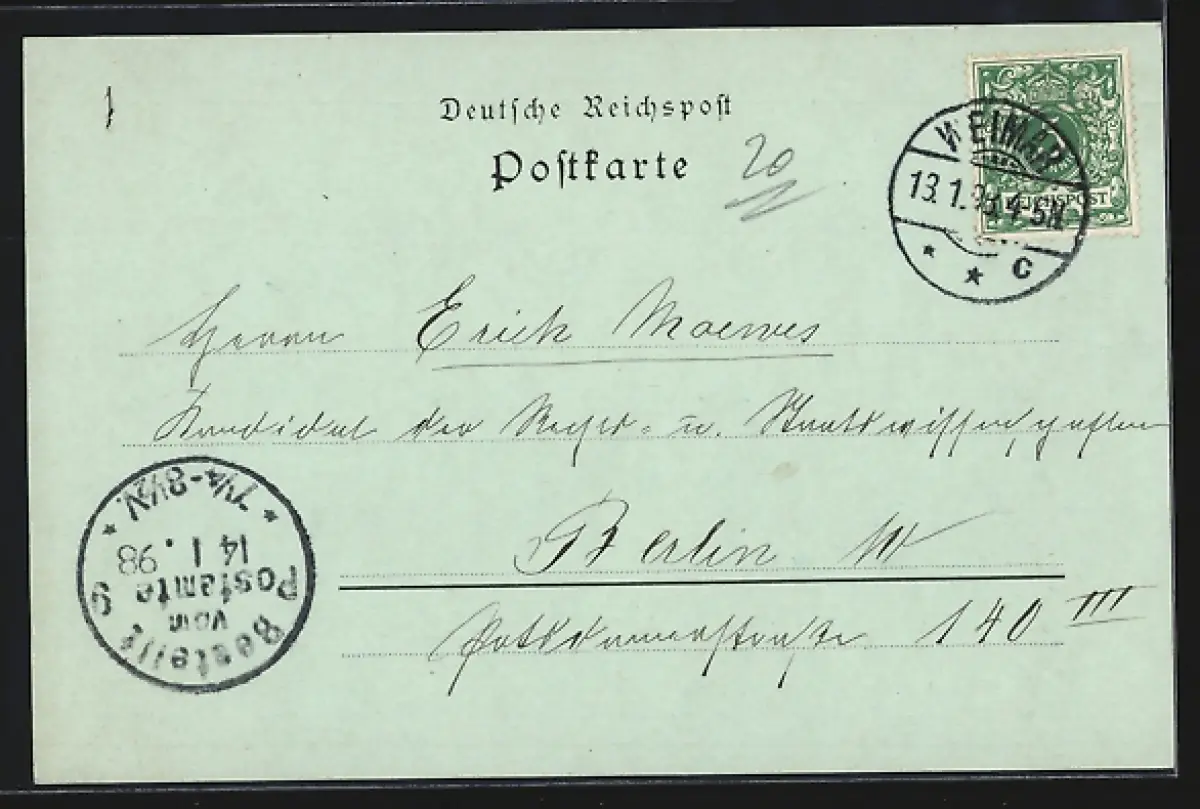 1
Deutsche Reichspost
Postkarte
20
WEIMAR
13.1.98. 4-5N
REICHSPOST
* * C
Herrn Erich Moewes
Kandidat der Rechts- u. Staatswissenschaften
Berlin W
Potsdamerstraße 140 III
Bestellt
vom
Postamte 9
14 1. 98
* 7¼-8½V. *